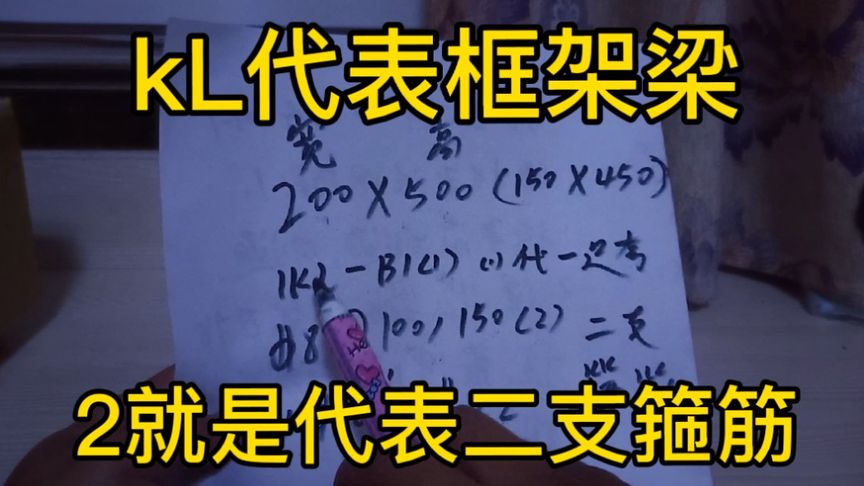 kL代表框架梁
宽 高
200×500(150×450)
-B1(1) (1)代一
100/150(2) 二支
2就是代表二支箍筋